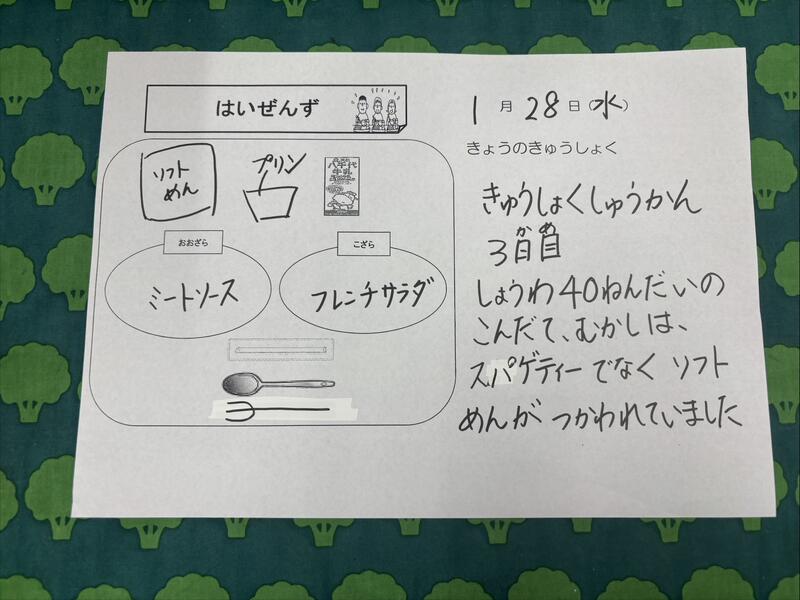 はいぜんず
ソフト
めん
プリン
八千代
牛乳
おおざら
ミートソース
こざら
フレンチサラダ
1月28日(水)
きょうのきゅうしょく
きゅうしょくしゅうかん
かめ
3日目
しょうわ40ねんだいの
こんだて、むかしは、
スパゲティーでなくソフト
めんがつかわれていました